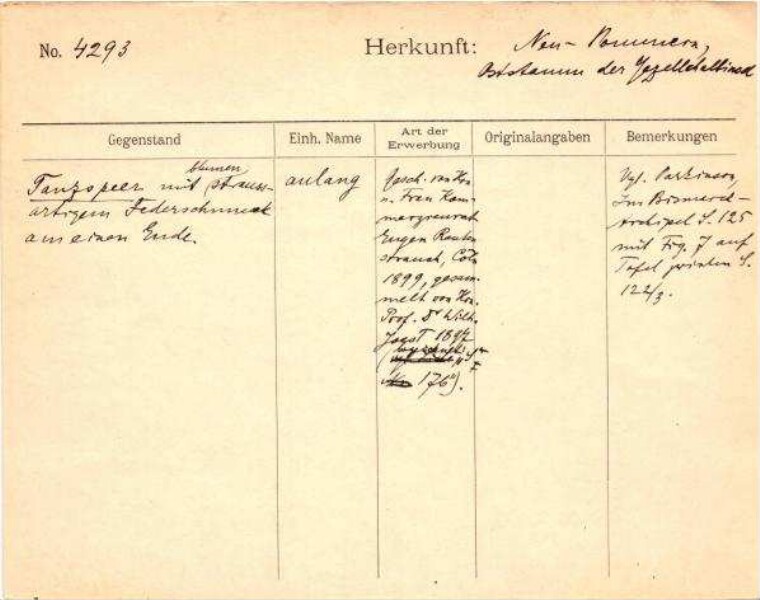 No. 4293
Herkunft: Neu-Pommern,
Oststamm der Gazellehalbinsel
Gegenstand
Einh. Name
Art der Erwerbung
Originalangaben
Bemerkungen
blumen
Tanzspeer mit strauss-
artigem Federschmuck
am einen Ende.
aulang
Gesch. von Hrn
u. Frau Kom-
merzienrat
Eugen Rauten
strauch, Cöln
1899, gesam-
melt von Hrn.
Prof. Dr Wilh.
Joest 1897
176).
Vgl. Parkinson,
Im Bismarck-
Archipel S. 125
mit Fig. 7 auf
Tafel zwischen S.
122/3.